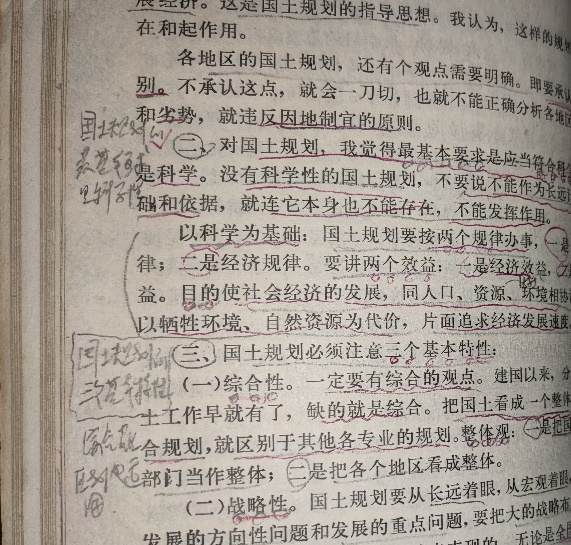 展经济。这是国土规划的指导思想。我认为，这样的规
在和起作用。
各地区的国土规划，还有个观点需要明确。即要承认
别。不承认这点，就会一刀切，也就不能正确分析各地区
和劣势，就违反因地制宜的原则。
二、对国土规划，我觉得最基本要求是应当符合科学
是科学。没有科学性的国土规划，不要说不能作为长远
础和依据，就连它本身也不能存在，不能发挥作用。
以科学为基础：国土规划要按两个规律办事，一是
律；二是经济规律。要讲两个效益：一是经济效益，
益。目的使社会经济的发展，同人口、资源、环境相协
以牺牲环境、自然资源为代价，片面追求经济发展速度
三、国土规划必须注意三个基本特性：
（一）综合性。一定要有综合的观点。建国以来，分
土工作早就有了，缺的就是综合。把国土看成一个整体
合规划，就区别于其他各专业的规划。整体观：一是把国
部门当作整体；二是把各个地区看成整体。
（二）战略性。国土规划要从长远着眼，从宏观着眼
发展的方向性问题和发展的重点问题，要把大的战略布
无论是全国
国土规划
国土规划
三个基本特性